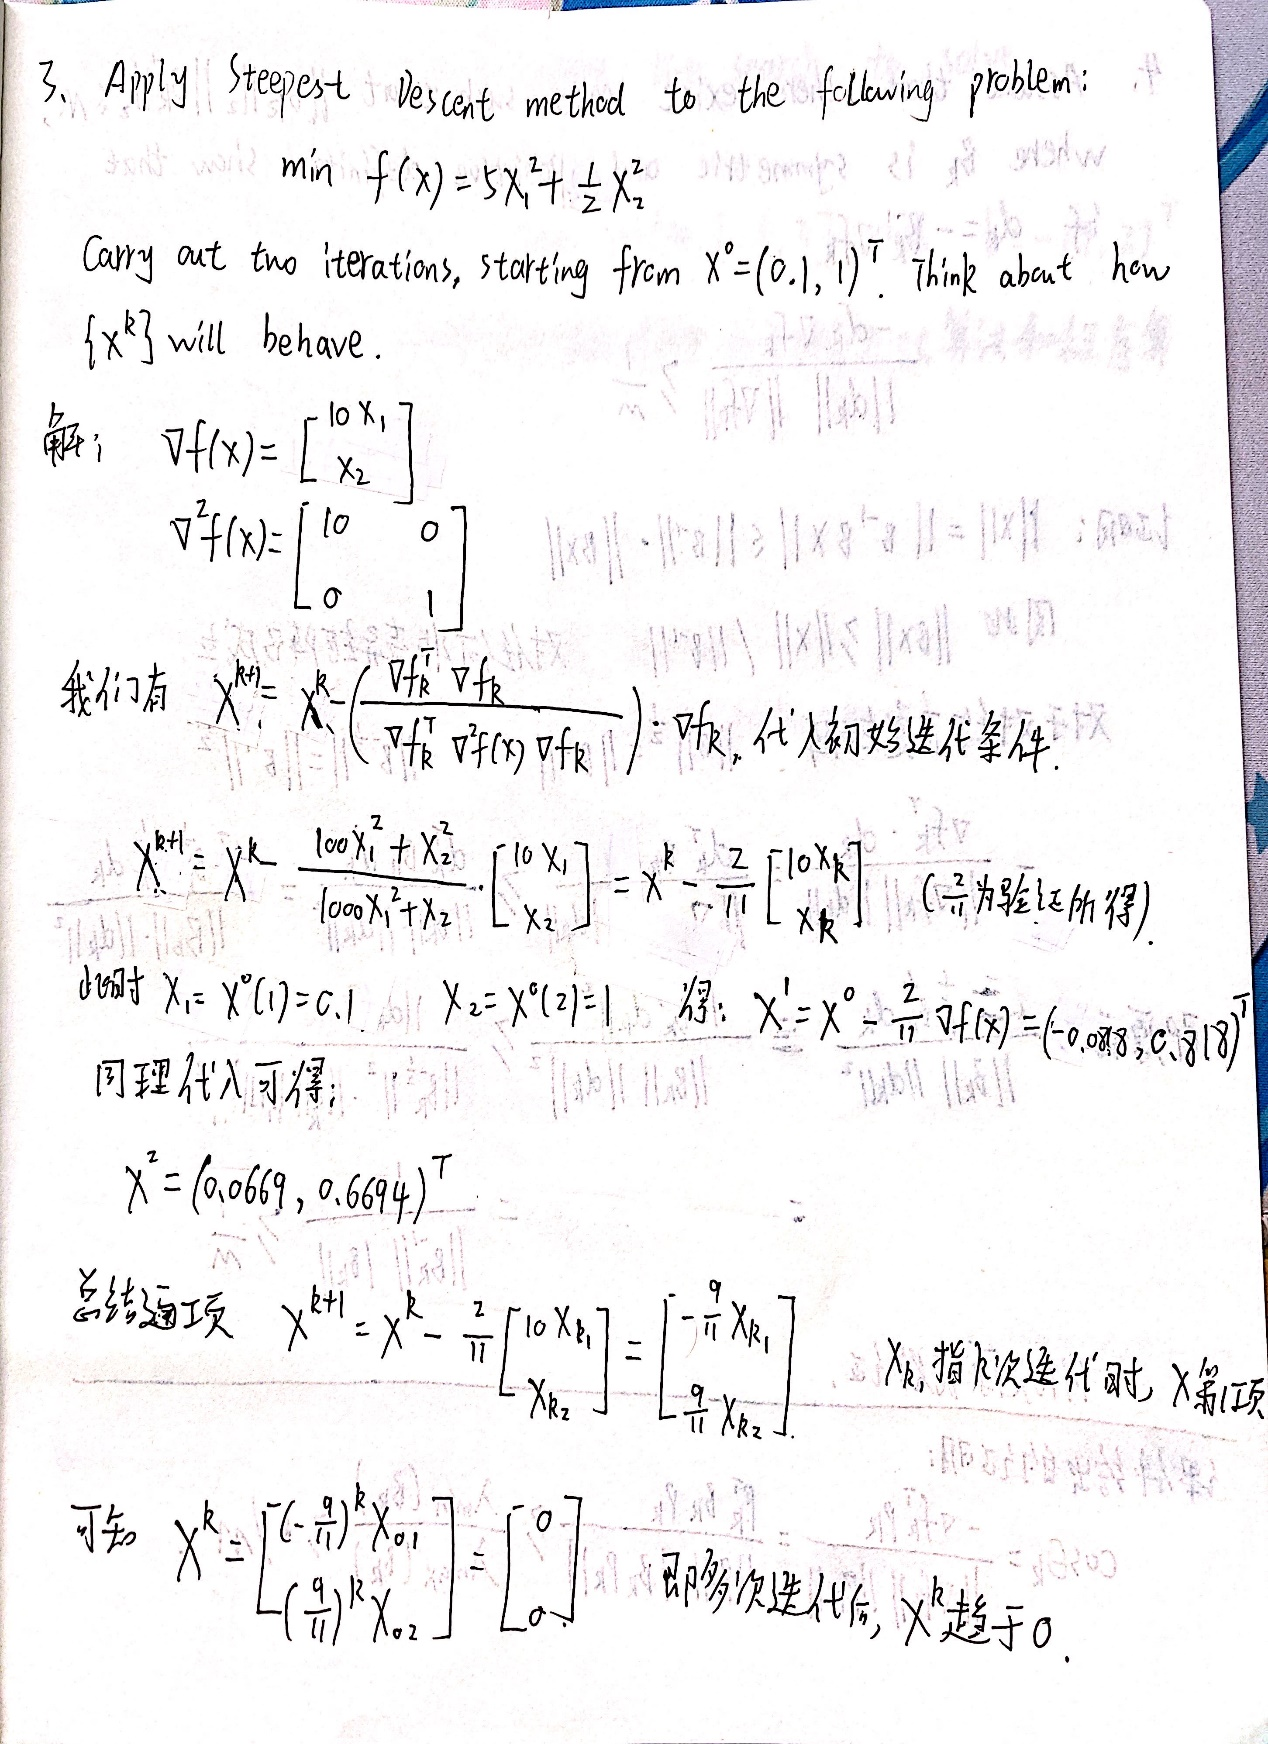 3、Apply Steepest Descent method to the following problem:
min f(x)=5x₁²+½x₂²
Carry out two iterations, starting from x⁰=(0.1, 1)ᵀ. Think about how
{xᵏ} will behave.
解: ∇f(x)=[10x₁ ; x₂]
∇²f(x)=[10 0 ; 0 1]
我们有 xᵏ⁺¹=xᵏ-(∇fₖᵀ∇fₖ / ∇fₖᵀ∇²f(x)∇fₖ)·∇fₖ, 代入初始迭代条件.
xᵏ⁺¹=xᵏ-(100x₁²+x₂² / 1000x₁²+x₂)·[10x₁ ; x₂]=xᵏ-2/11[10xₖ ; xₖ] (2/11为验证所得).
此时 x₁=x⁰(1)=0.1 x₂=x⁰(2)=1 得: x¹=x⁰-2/11∇f(x)=(-0.0818, 0.818)ᵀ
同理代入可得:
x²=(0.0669, 0.6694)ᵀ
总结通项 xᵏ⁺¹=xᵏ-2/11[10xₖ₁ ; xₖ₂]=[-9/11xₖ₁ ; 9/11xₖ₂] xₖ₁指k次迭代时, x第1项
可知 xᵏ=[(-9/11)ᵏx₀₁ ; (9/11)ᵏx₀₂]=[0 ; 0] 即多次迭代后, xᵏ趋于0.